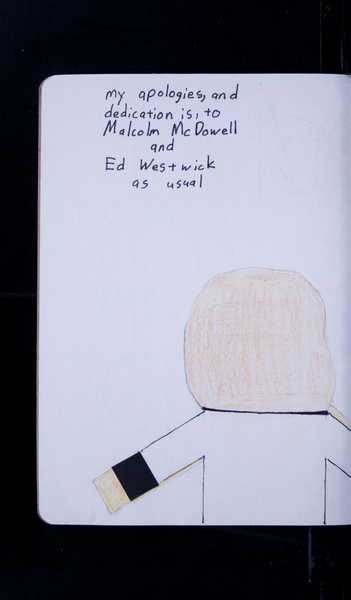 my apologies, and
dedication is, to
Malcolm McDowell
and
Ed Westwick
as usual